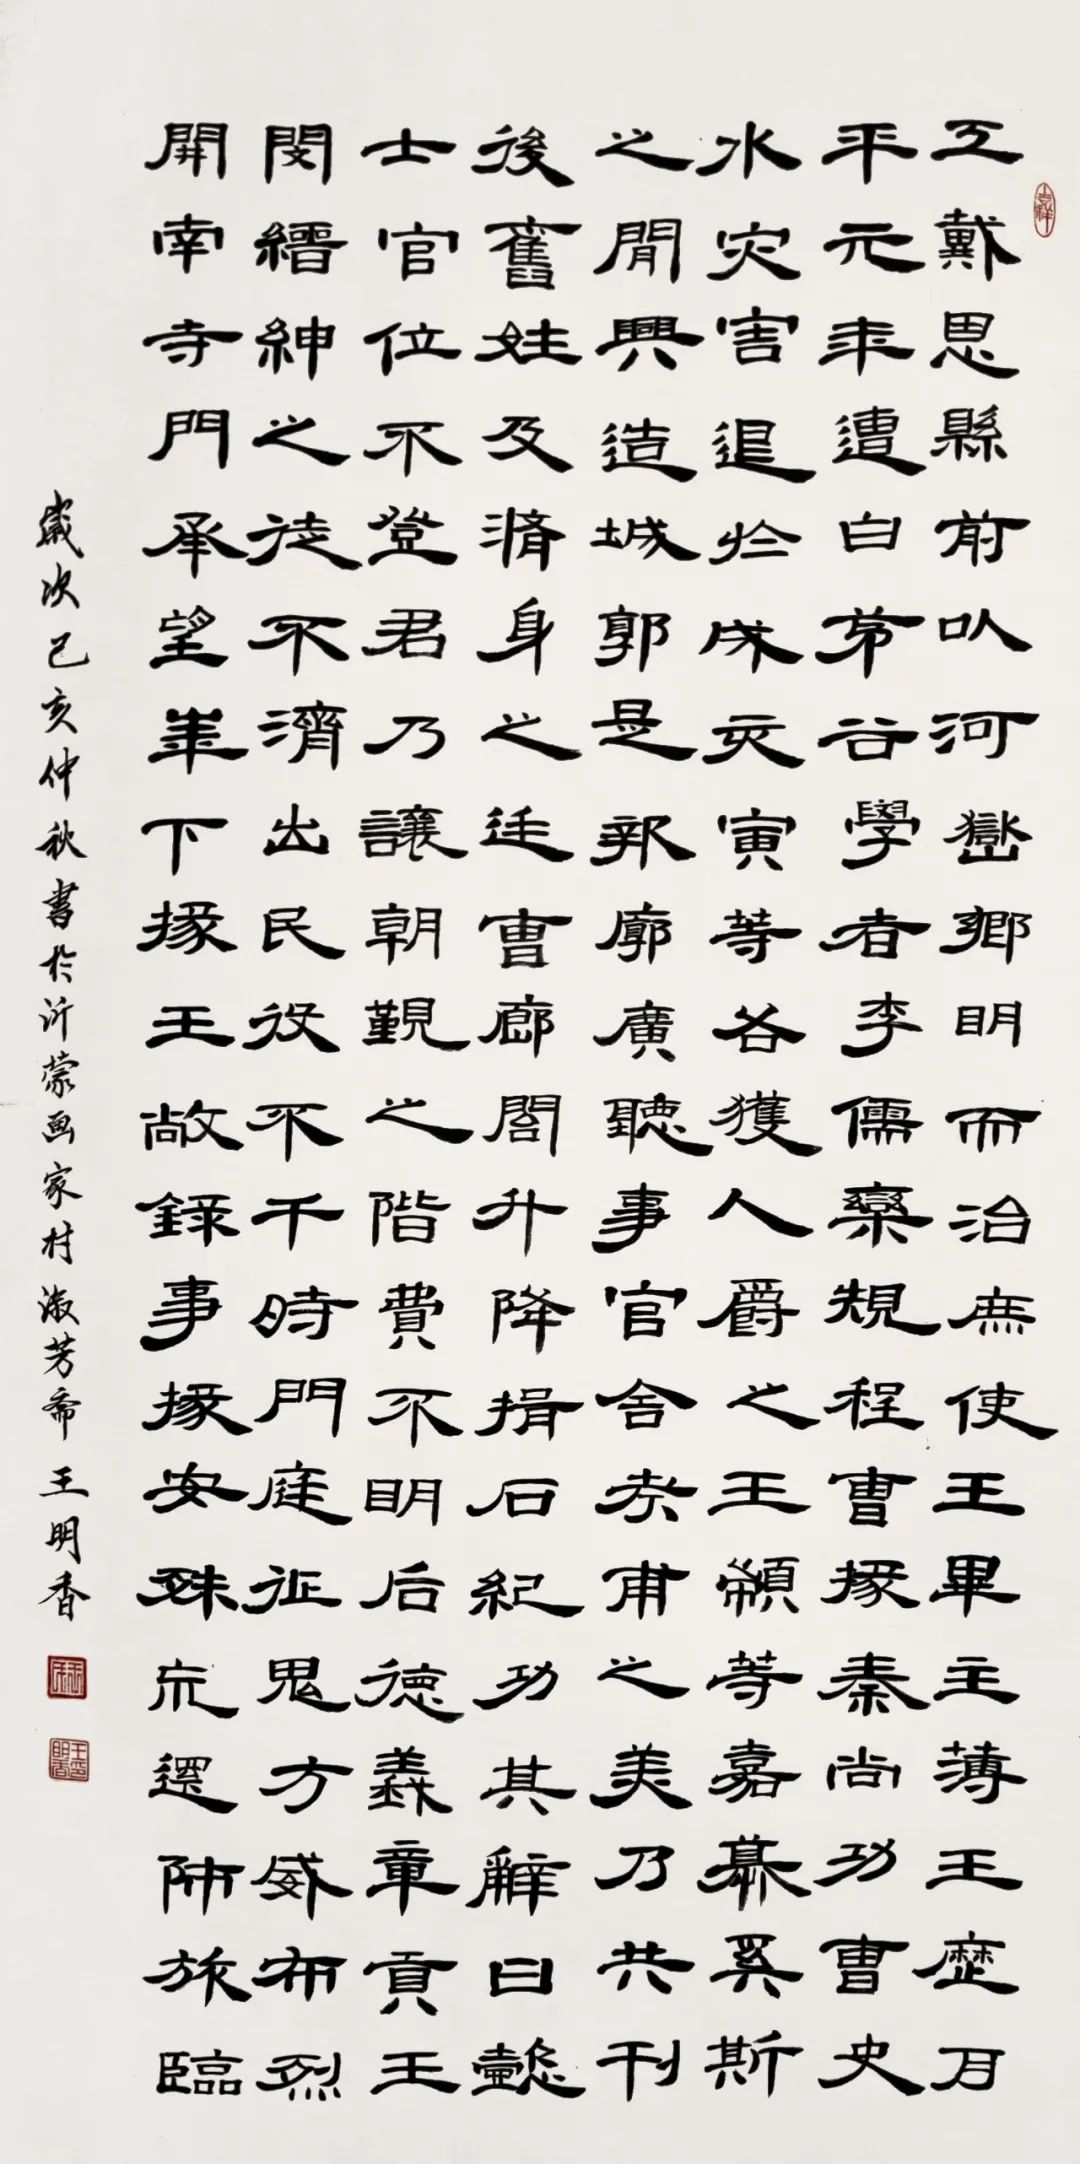 吉祥
工戴恩縣前以河嶽鄉明而治庶使王畢主薄王歷戶
平元年遭白茅谷學者李儒欒規程曹掾秦尚功曹史
水灾害退於戍亥寅等各獲人爵之王顓等嘉慕奚斯
之間興造城郭是報廓廣聽事官舍考甫之美乃共刊
後舊姓及脩身之廷曹廊閣升降揖石紀功其辭曰懿
士官位不登君乃讓朝覲之階費不明后德義章貢王
閔縉紳之徒不濟出民役不干時門庭征鬼方威布烈
開南寺門承望華下掾王敞錄事掾安殊巟還師旅臨
歲次己亥仲秋書於沂蒙画家村淑芳斋王明香